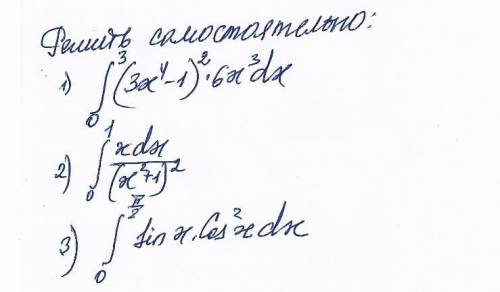 Решить самостоятельно:
1) ∫₀³ (3x⁴-1)²·6x³dx
2) ∫₀¹ xdx/(x²+1)²
3) ∫₀^(π/2) sin x·Cos²x dx